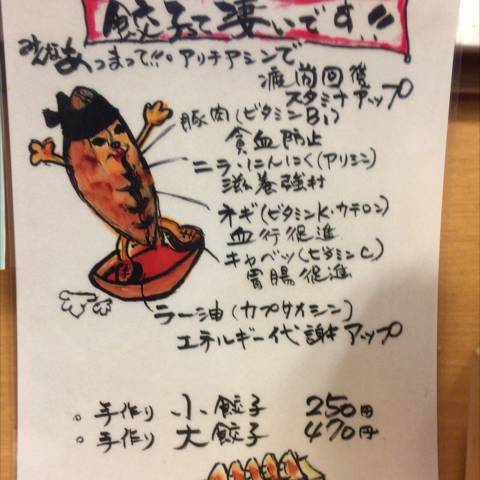 餃子って凄いです!!
みんなあつまって!!。アリチアシンで
疲労回復
スタミナアップ
豚肉(ビタミンB1)
貧血防止
ニラ・にんにく(アリシン)
滋養強壮
ネギ(ビタミンK・カテロン)
血行促進
キャベツ(ビタミンC)
胃腸促進
ラー油(カプサイシン)
エネルギー代謝アップ
。手作り 小餃子 250円
。手作り 大餃子 470円